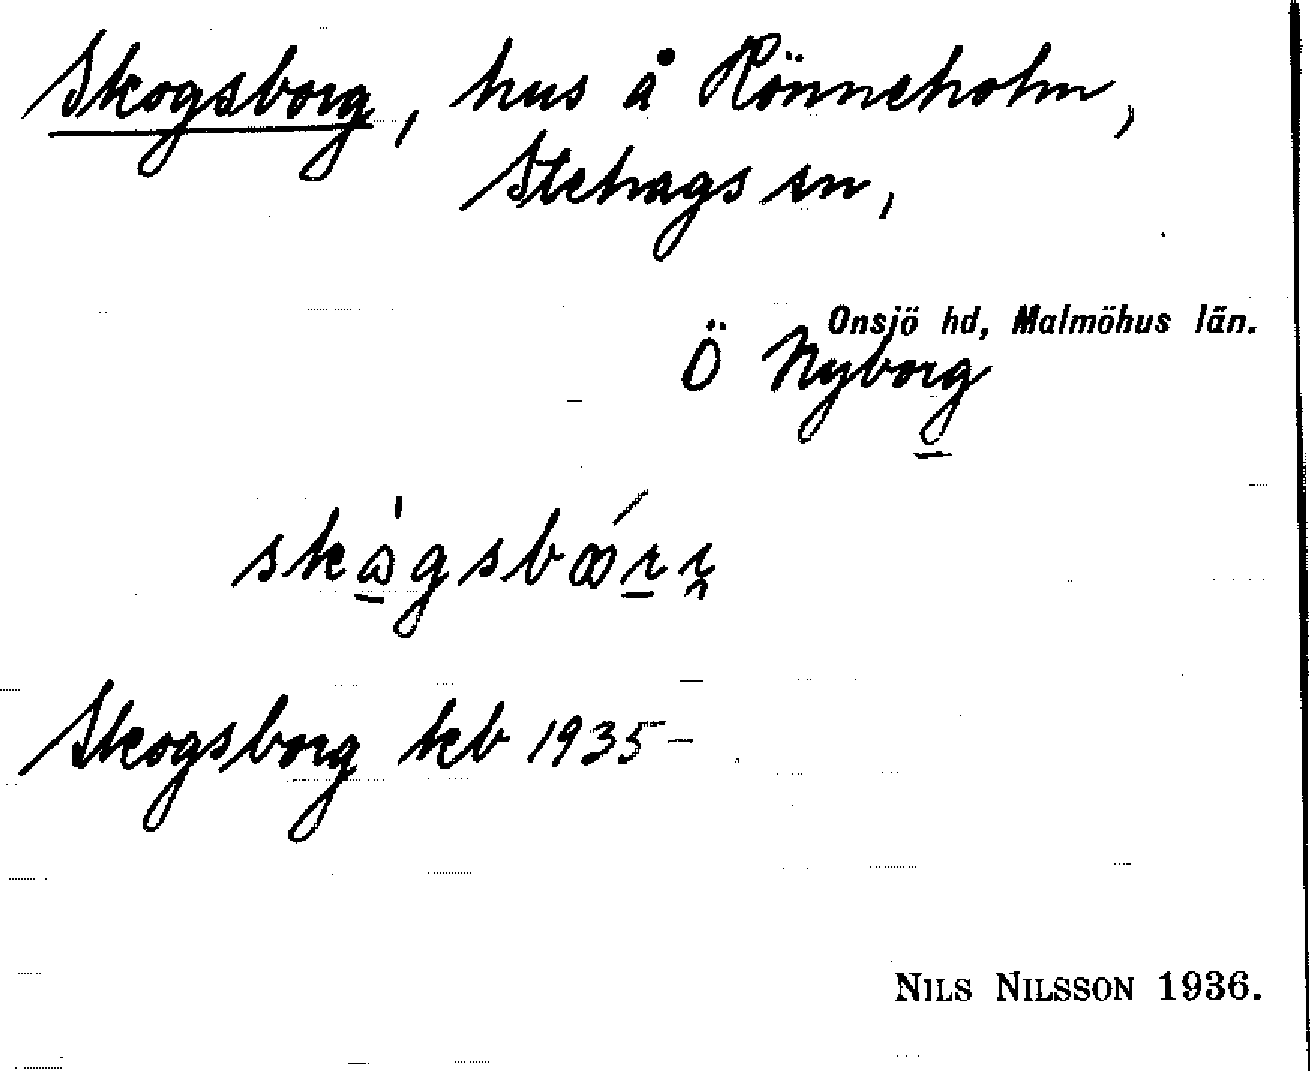 Skogsborg, hus å Rönneholm,
Stehags sn,
Onsjö hd, Malmöhus län.
Ö Nyborg
Skogsborg kb 1935-
NILS NILSSON 1936.